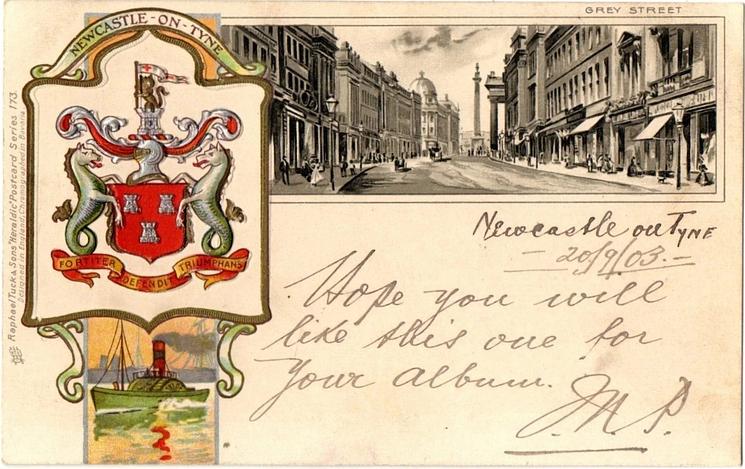 GREY STREET
NEWCASTLE-ON-TYNE
FORTITER DEFENDIT TRIUMPHANS
Raphael Tuck & Sons "Heraldic" Postcard Series 173.
Designed in England, Chromographed in Bavaria.
Newcastle on Tyne
- 20/9/03. -
Hope you will
like this one for
your album.
M.P.